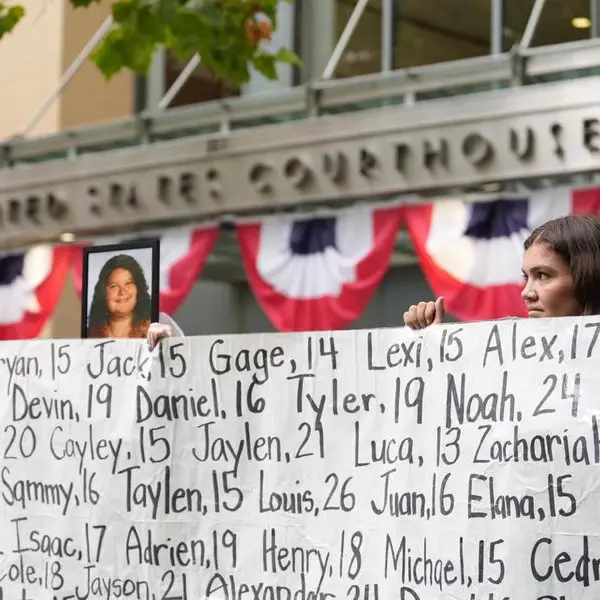 UNITED STATES COURTHOUSE
ryan, 15 Jack, 15 Gage, 14 Lexi, 15 Alex, 17
Devin, 19 Daniel, 16 Tyler, 19 Noah, 24
20 Cayley, 15 Jaylen, 21 Luca, 13 Zachariah
Sammy, 16 Taylen, 15 Louis, 26 Juan, 16 Elana, 15
Isaac, 17 Adrien, 19 Henry, 18 Michael, 15 Cedr
Cole, 18 Jayson, 21 Alexander, 24